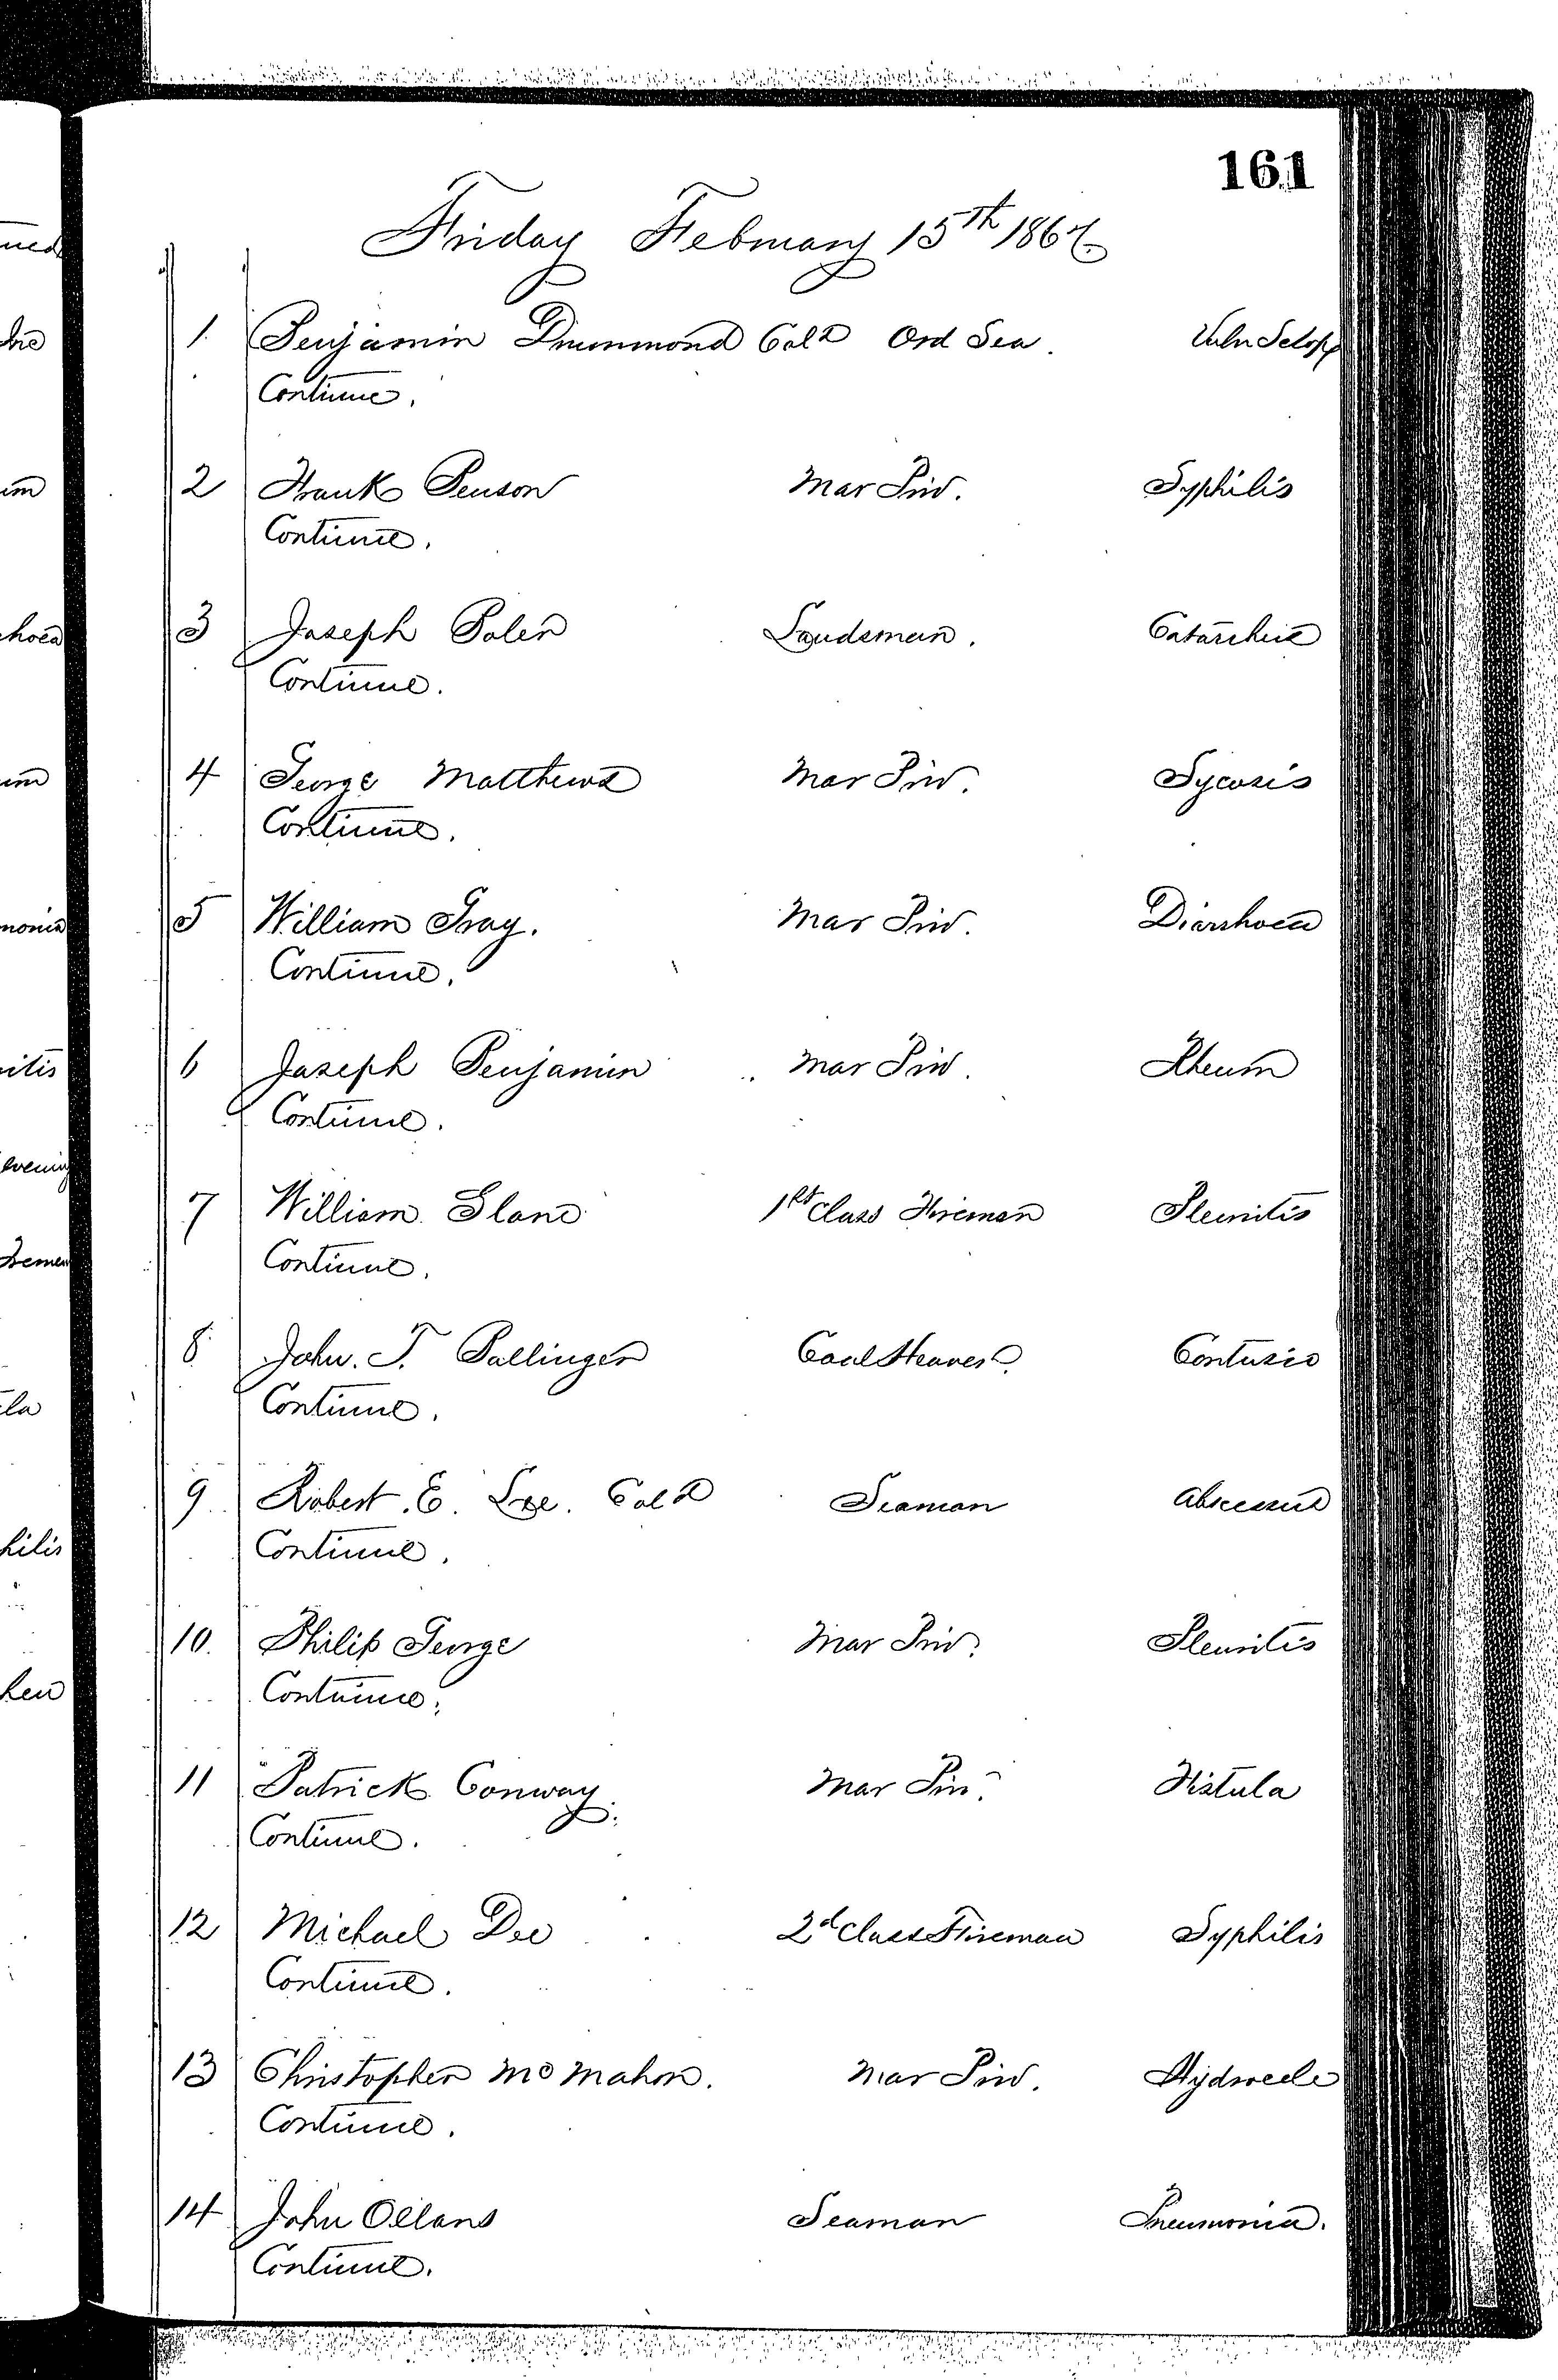 161
Friday February 15th 1867.
1. Benjamin Drummond Cold Ord Sea. Vuln Sclop
Continue.
2 Frank Benson Mar Priv. Syphilis
Continue.
3 Joseph Boler Landsman. Catarrhus
Continue.
4 George Matthews Mar Priv. Sycosis
Continue.
5 William Gray. Mar Priv. Diarrhoea
Continue.
6 Joseph Benjamin Mar Priv. Rheum
Continue.
7 William Slane 1st Class Fireman Pleuritis
Continue.
8 John. T. Ballinger Coal Heaver. Contusio
Continue.
9 Robert. E. Lee. Cold Seaman Abscessus
Continue.
10. Philip George Mar Priv. Pleuritis
Continue.
11 Patrick Conway. Mar Priv. Fistula
Continue.
12 Michael Dee 2d Class Fireman Syphilis
Continue.
13 Christopher McMahon. Mar Priv. Hydrocele
Continue.
14 John Ollans Seaman Pneumonia.
Continue.